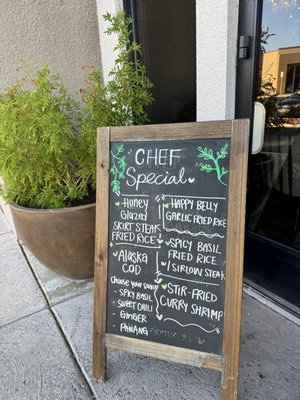 CHEF
Special
Honey
Glazed
SKIRT STEAK
FRIED RICE
Alaska
COD
Choose your sauce
- SPICY BASIL
- SWEET CHILI
- GINGER
- PANANG
HAPPY BELLY
GARLIC FRIED RICE
SPICY BASIL
FRIED RICE
SIRLOIN STEAK
STIR-FRIED
CURRY SHRIMP